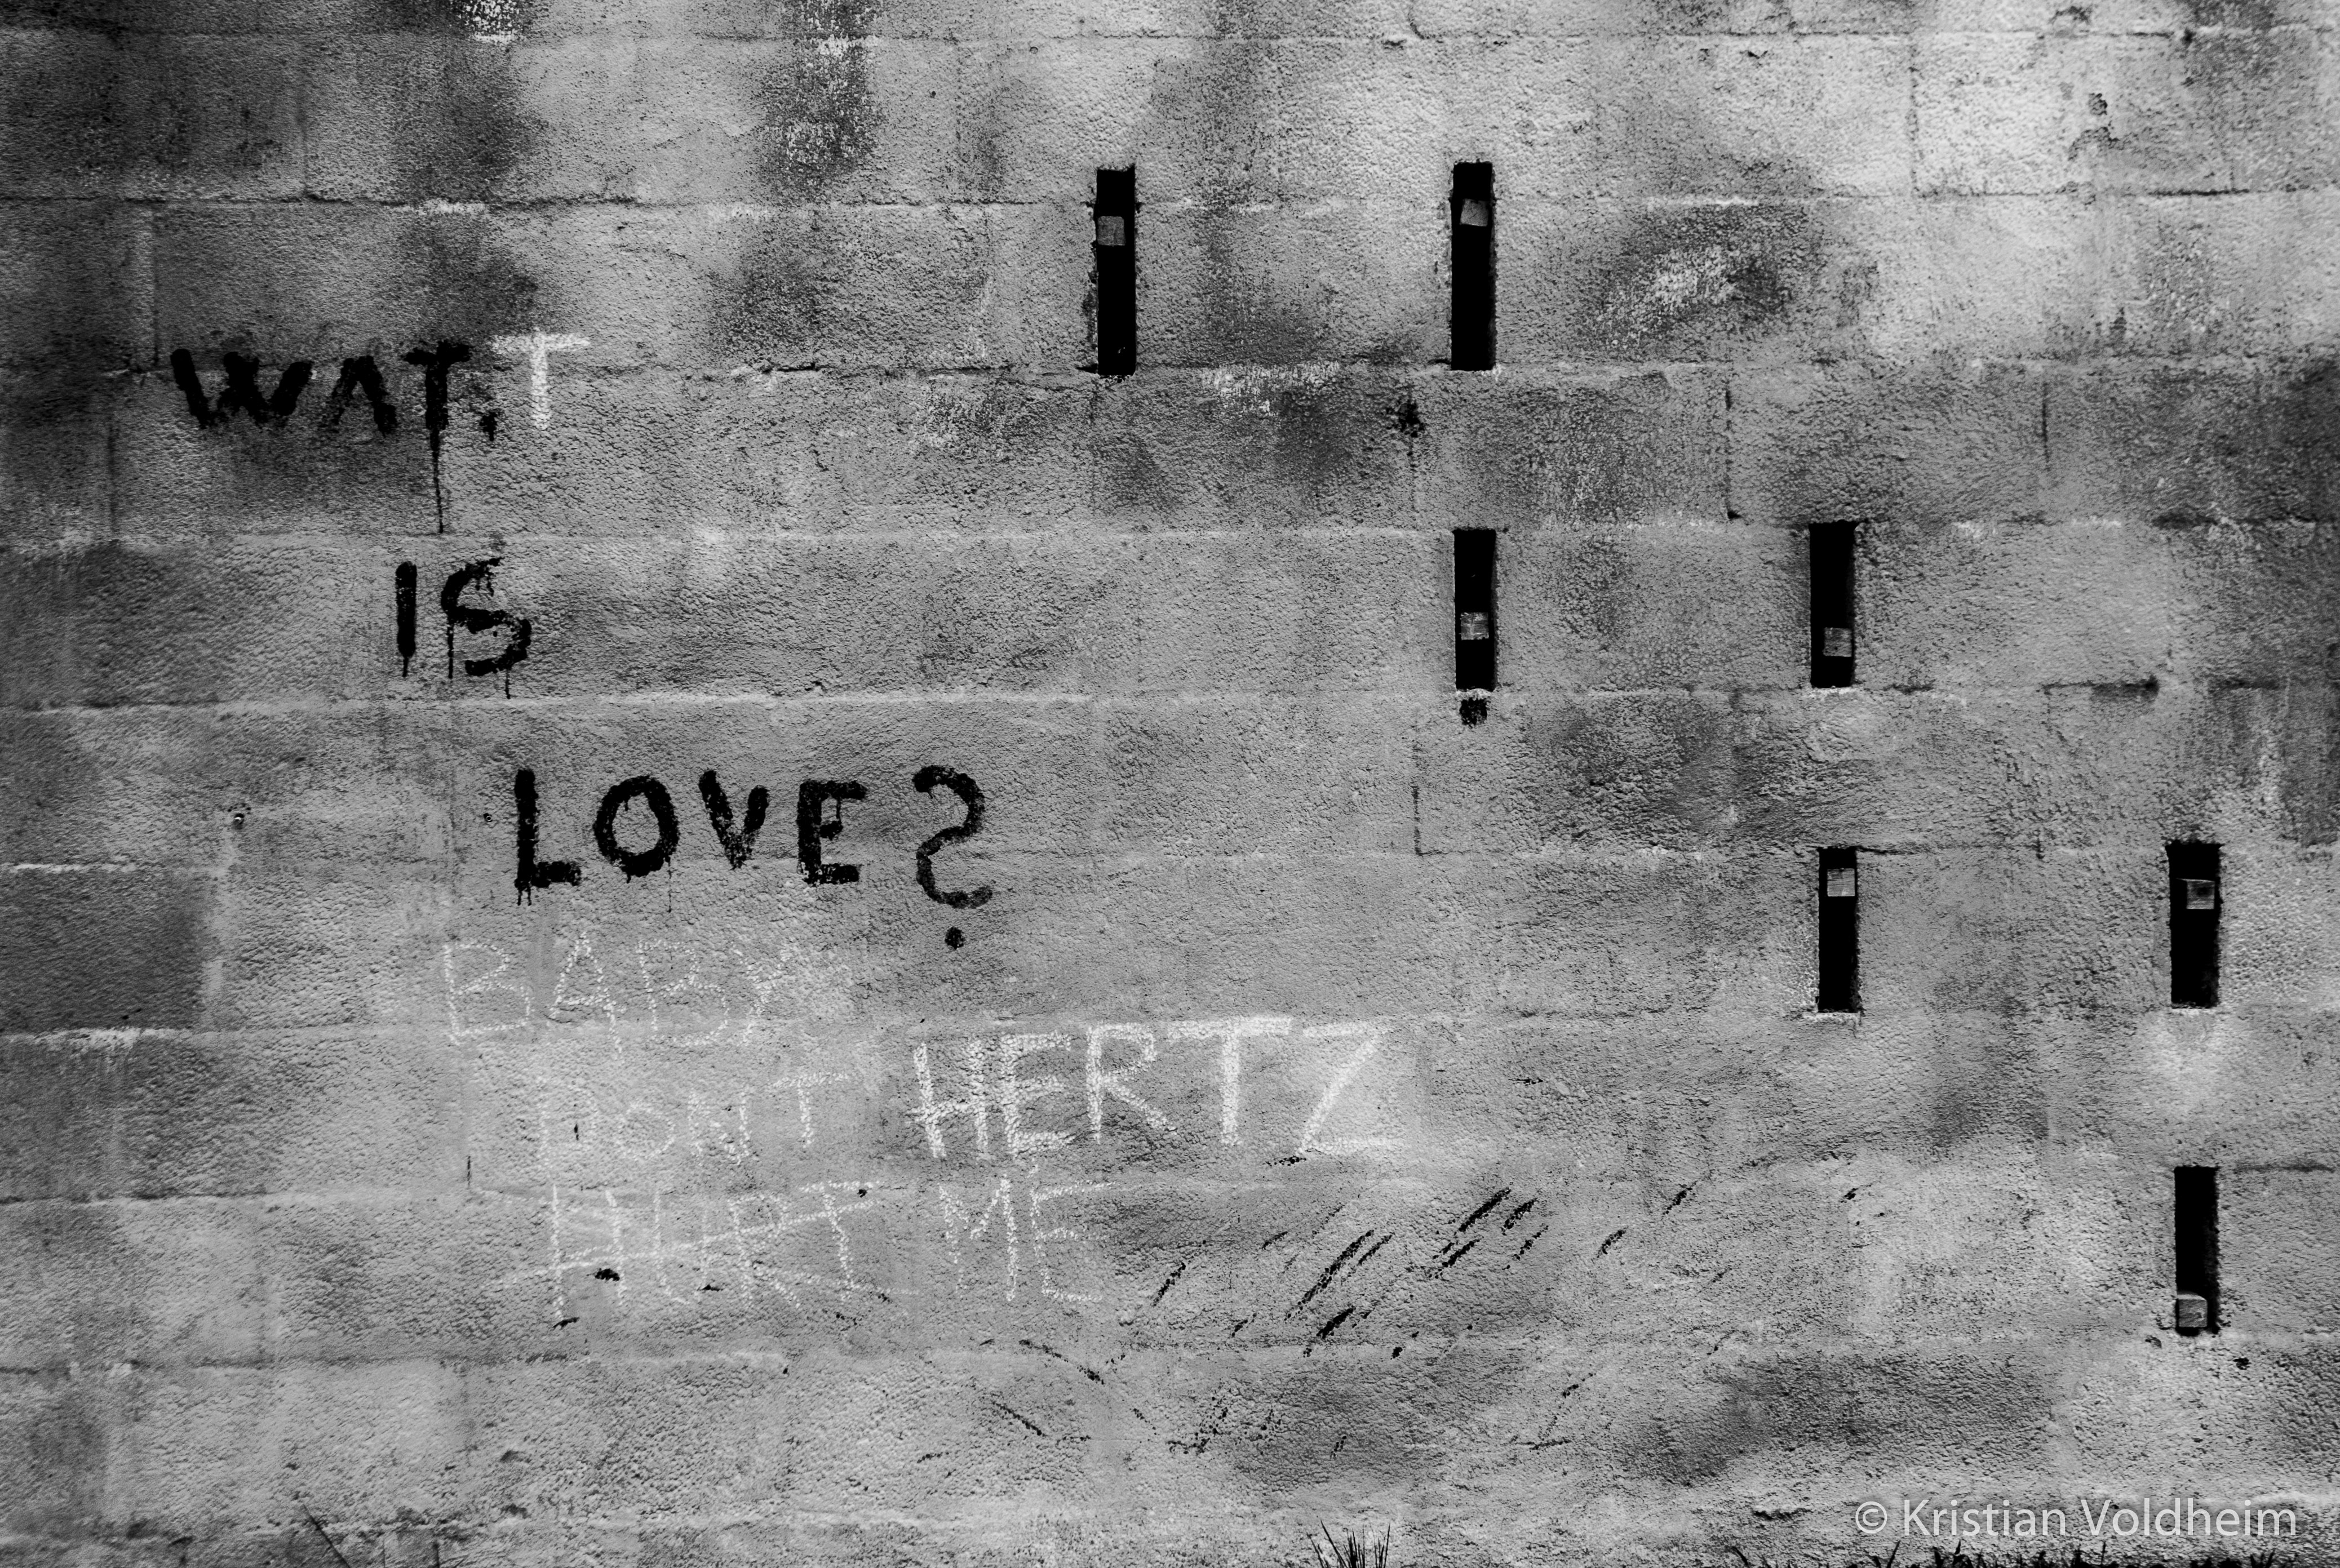 WAT.T
IS
LOVE?
BABY
DONT HERTZ
HURT ME
© Kristian Voldheim